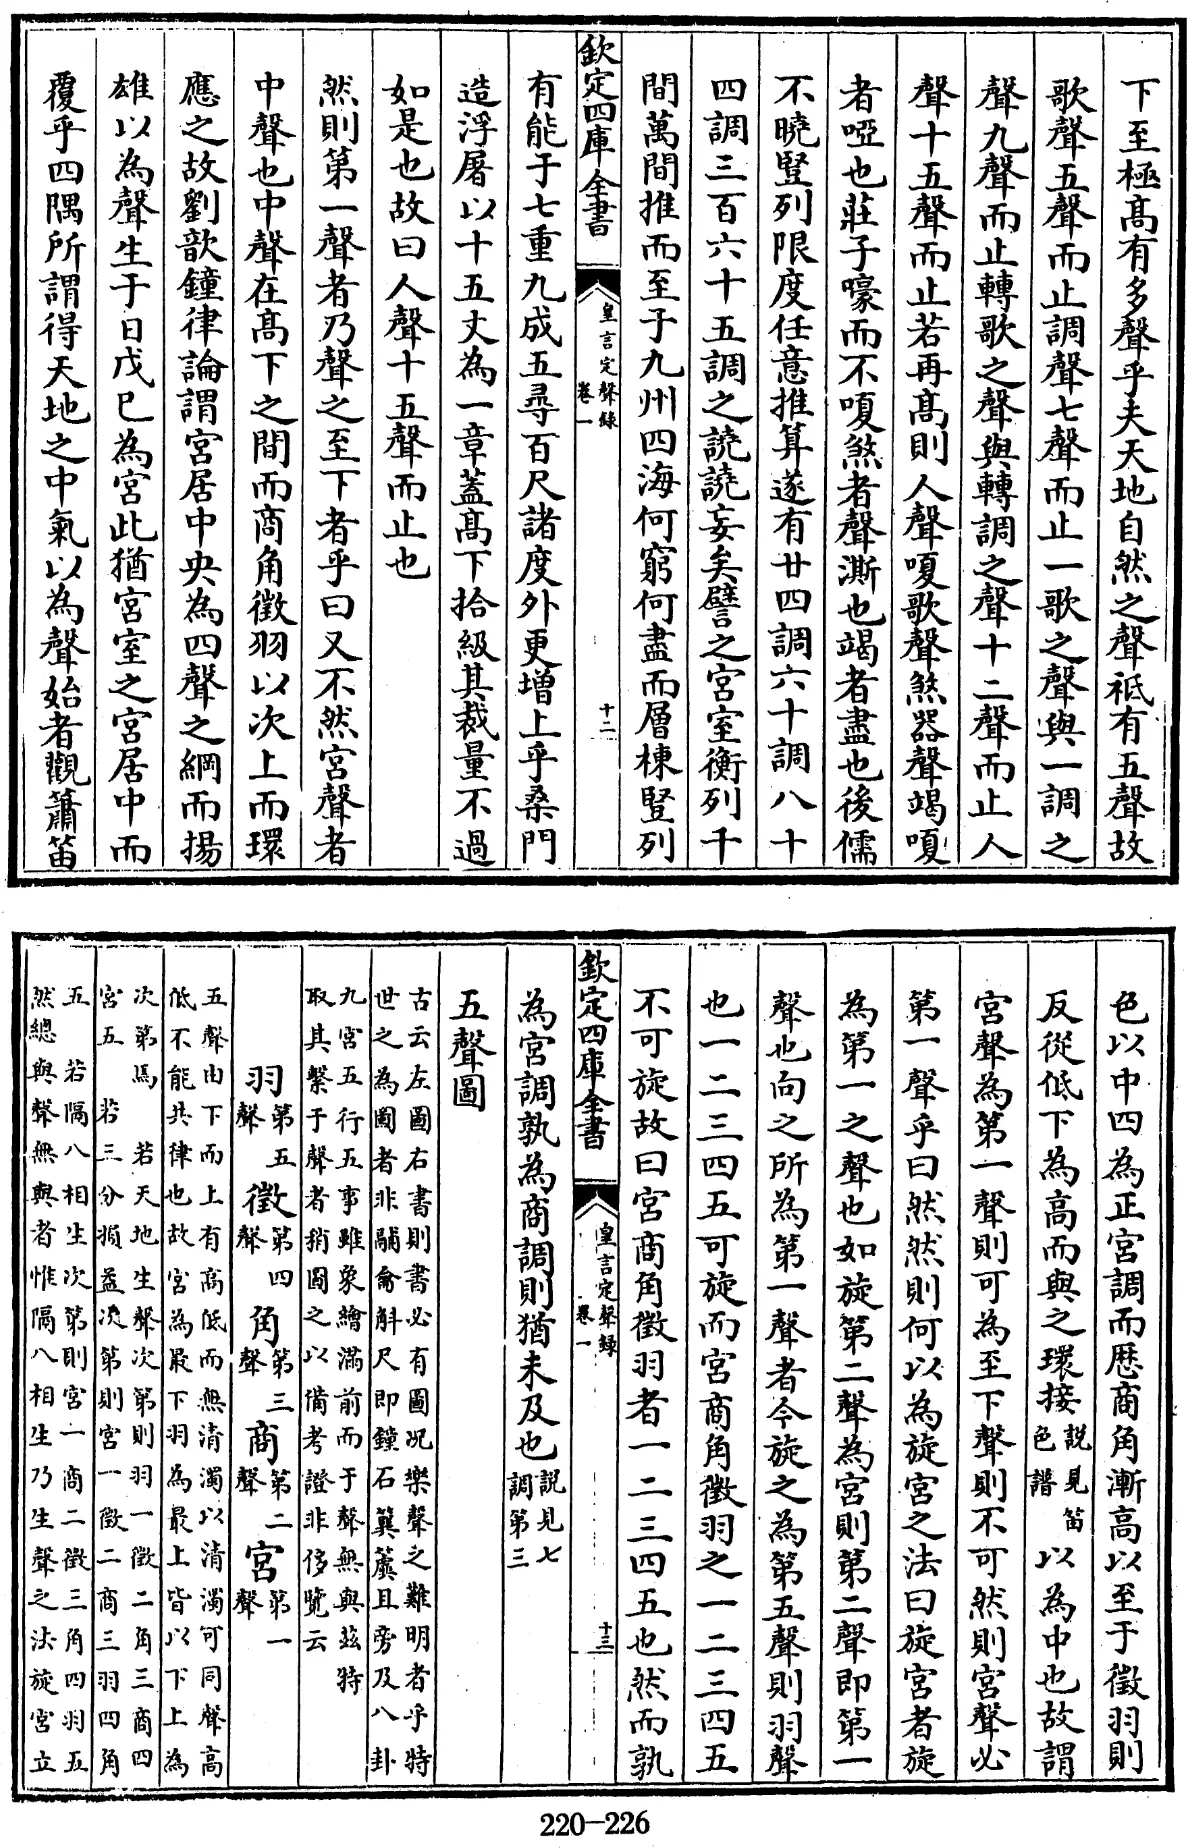 下至極髙有多聲乎夫天地自然之聲祗有五聲故
歌聲五聲而止調聲七聲而止一歌之聲與一調之
聲九聲而止轉歌之聲與轉調之聲十二聲而止人
聲十五聲而止若再髙則人聲嗄歌聲煞器聲竭嗄
者啞也莊子嚎而不嗄煞者聲澌也竭者盡也後儒
不曉豎列限度任意推算遂有廿四調六十調八十
四調三百六十五調之譊譊妄矣譬之宮室衡列千
間萬間推而至于九州四海何窮何盡而層棟豎列
欽定四庫全書
皇言定聲録
卷一
十二
有能于七重九成五尋百尺諸度外更増上乎桑門
造浮屠以十五丈為一章蓋髙下拾級其裁量不過
如是也故曰人聲十五聲而止也
然則第一聲者乃聲之至下者乎曰又不然宮聲者
中聲也中聲在髙下之間而商角徵羽以次上而環
應之故劉歆鐘律論謂宮居中央為四聲之綱而揚
雄以為聲生于日戊巳為宮此猶宮室之宮居中而
覆乎四隅所謂得天地之中氣以為聲始者觀簫笛
色以中四為正宮調而歴商角漸高以至于徵羽則
反從低下為高而與之環接說見笛
色譜以為中也故謂
宮聲為第一聲則可為至下聲則不可然則宮聲必
第一聲乎曰然然則何以為旋宮之法曰旋宮者旋
為第一之聲也如旋第二聲為宮則第二聲即第一
聲也向之所為第一聲者今旋之為第五聲則羽聲
也一二三四五可旋而宮商角徵羽之一二三四五
不可旋故曰宮商角徵羽者一二三四五也然而孰
欽定四庫全書
皇言定聲録
卷一
十三
為宮調孰為商調則猶未及也說見七
調第三
五聲圖
古云左圖右書則書必有圖况樂聲之難明者乎特
世之為圖者非鬴龠斛尺即鐘石簨簴且旁及八卦
九宮五行五事雖象繪滿前而于聲無與兹特
取其繫于聲者稍圖之以備考證非侈覽云
羽第五
聲 徵第四
聲 角第三
聲 商第二
聲 宮第一
聲
五聲由下而上有高低而無清濁以清濁可同聲高
低不能共律也故宮為最下羽為最上皆以下上為
次第焉 若天地生聲次第則羽一徵二角三商四
宮五 若三分損益次第則宮一徵二商三羽四角
五 若隔八相生次第則宮一商二徵三角四羽五
然總與聲無與者惟隔八相生乃生聲之法旋宮立
220-226